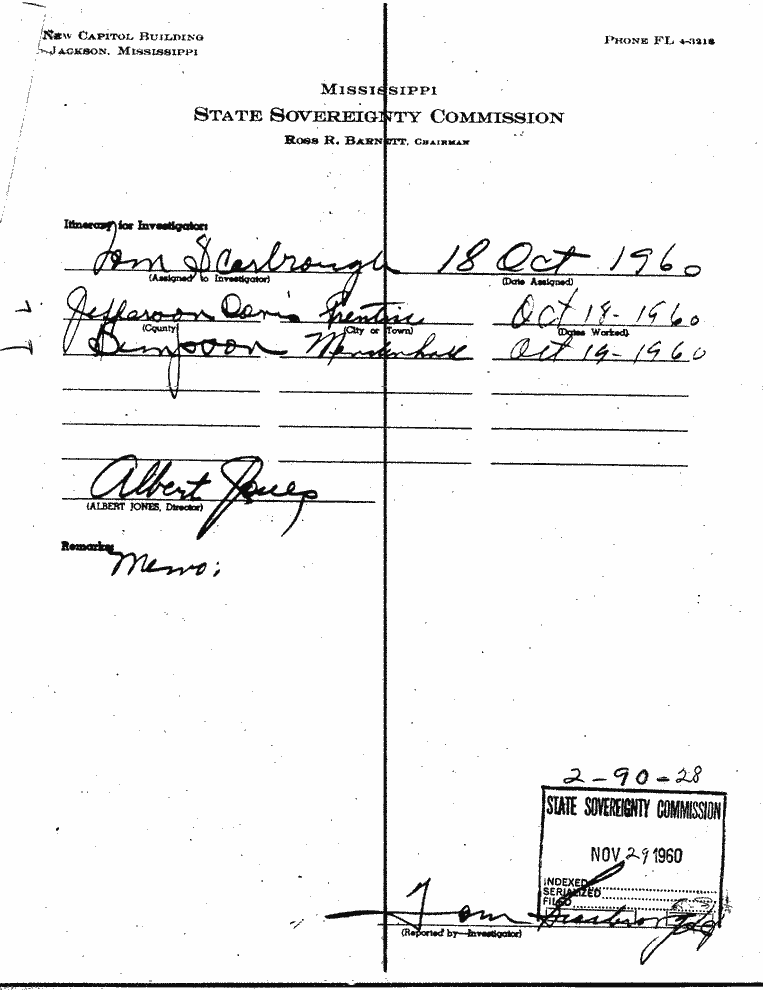 NEW CAPITOL BUILDING
JACKSON, MISSISSIPPI
PHONE FL 4-3218
MISSISSIPPI
STATE SOVEREIGNTY COMMISSION
ROSS R. BARNETT, CHAIRMAN
Itinerary for Investigator:
Tom Scarbrough 18 Oct 1960
(Assigned to Investigator) (Date Assigned)
Jefferson Davis Prentiss Oct 18-1960
(County) (City or Town) (Dates Worked)
Simpson Mendenhall Oct 19-1960
Albert Jones
(ALBERT JONES, Director)
Remarks:
Memo:
2-90-28
STATE SOVEREIGNTY COMMISSION
NOV 29 1960
INDEXED
SERIALIZED
FILED
Tom Scarbrough
(Reported by—Investigator)